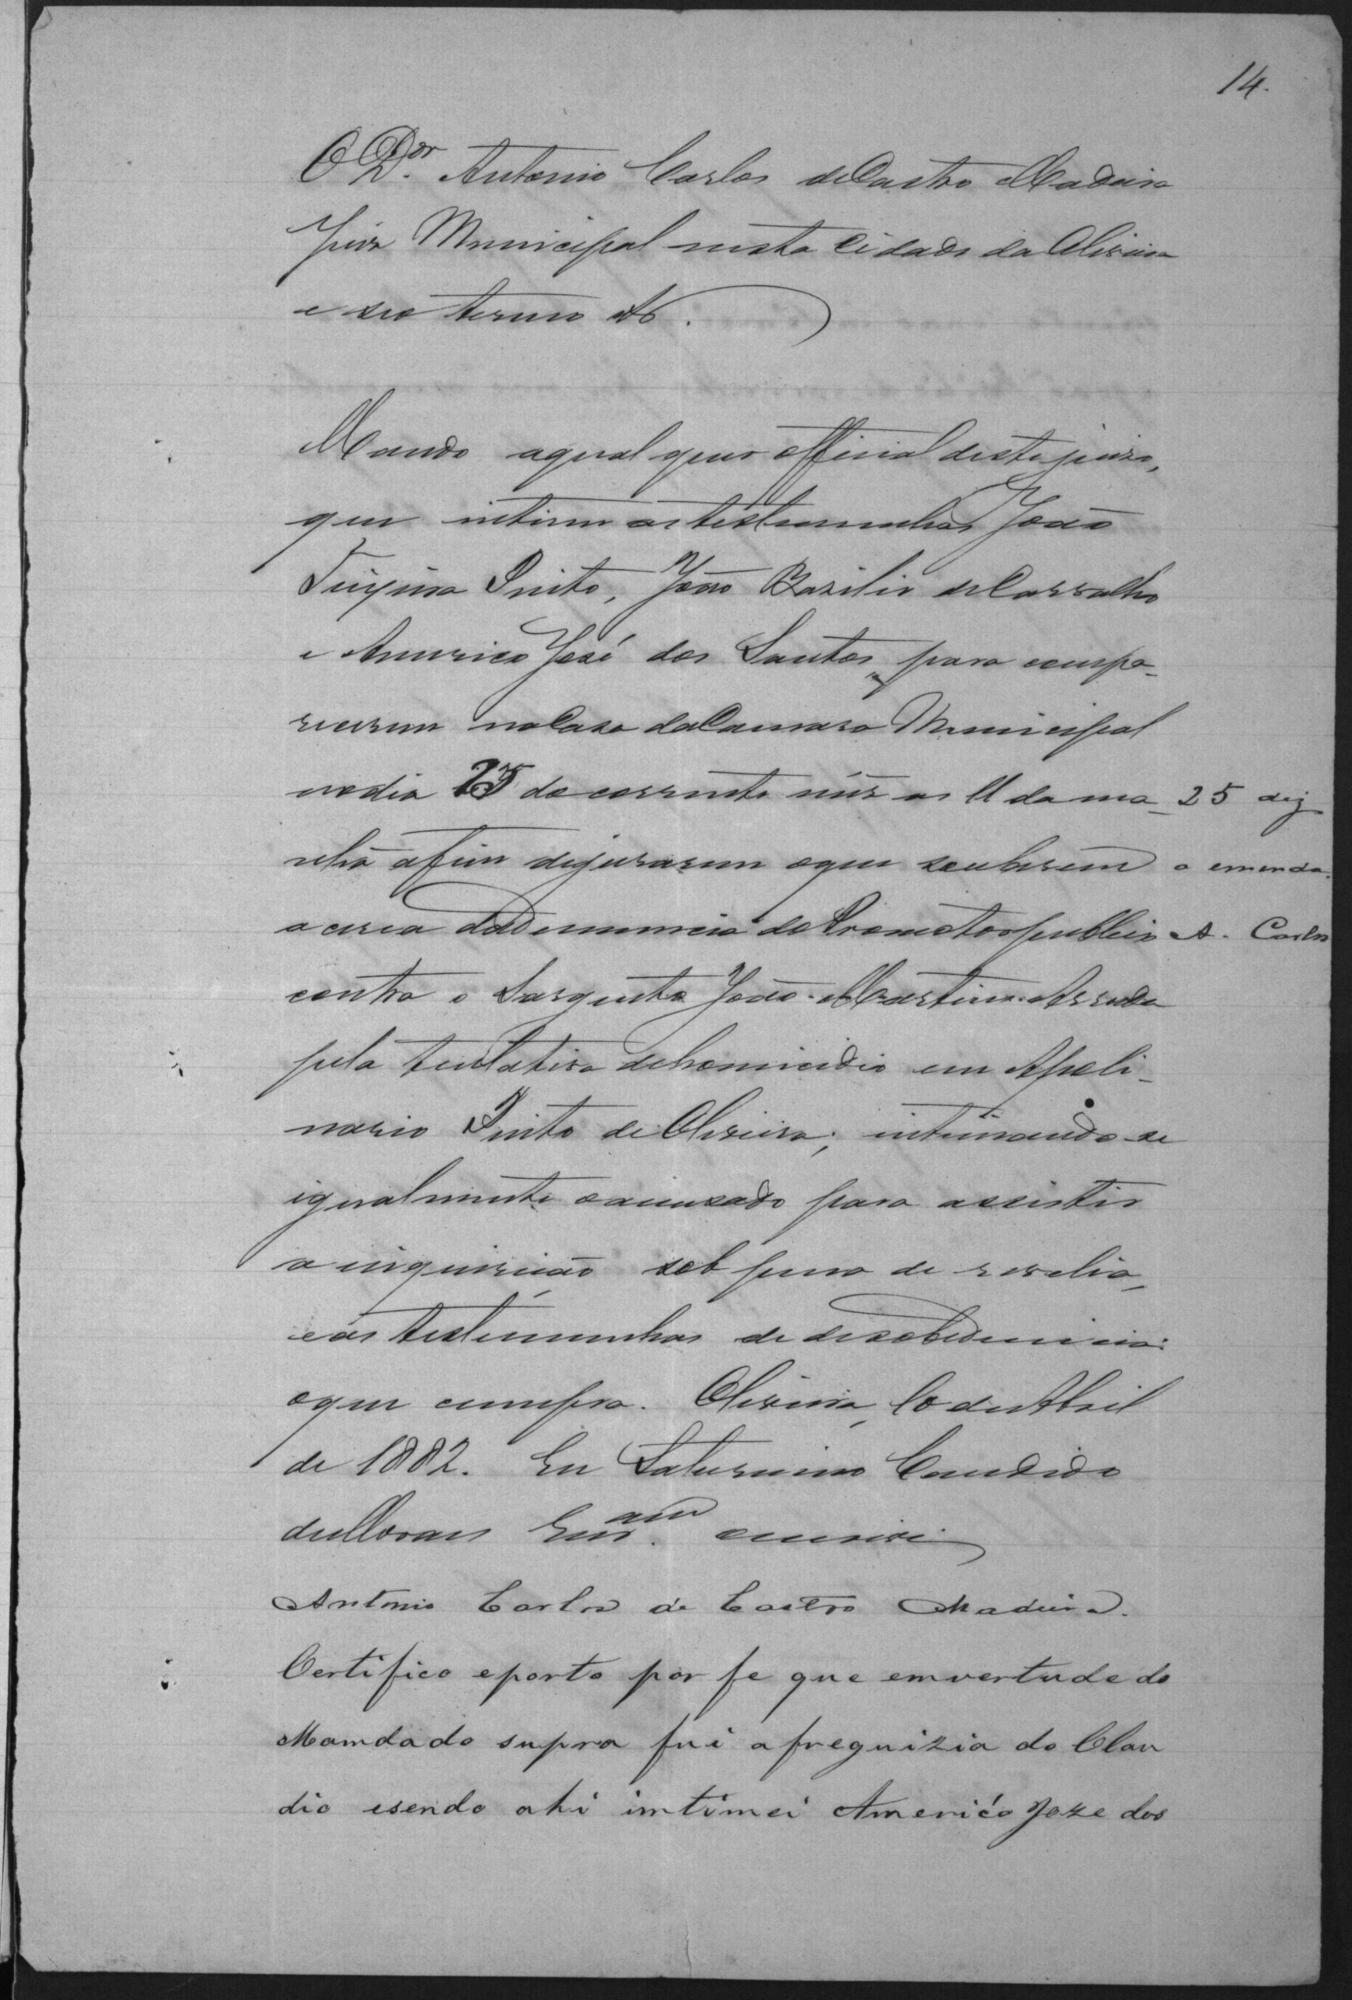 14.
O Dor. Antonio Carlos de Castro Madeira
Juiz Municipal nesta Cidade da Oliveira
e seo termo &.
Mando aqualquer official deste juizo,
que intime as testemunhas João
Teixeira Pinto, João Bazilio de Carvalho
e Americo José dos Santos, para compa-
recerem na Casa da Camara Municipal
no dia 25 do corrente mez as 11 da ma-
nhã afim dejurarem oque souberem
acerca da Denuncia do Promotor publico
contra o Sargento João Martins Arruda
pela tentativa dehomicidio em Apoli-
nario Pinto de Oliveira; intimando-se
igualmente oaccuzado para assistir
a inquirição sob pena de revelia,
eas testemunhas de desobediencia:
oque cumpra. Oliveira, 10 de Abril
de 1882. Eu Saturnino Candido
de Moraes Escam. escrevi
25 diz
a emenda.
A. Carlos
Antonio Carlos de Castro Madeira.
Certifico eporto por fe que emvertude do
Mamdado supra fui a freguizia do Clau
dio esendo ahi imtimei Americo Joze dos